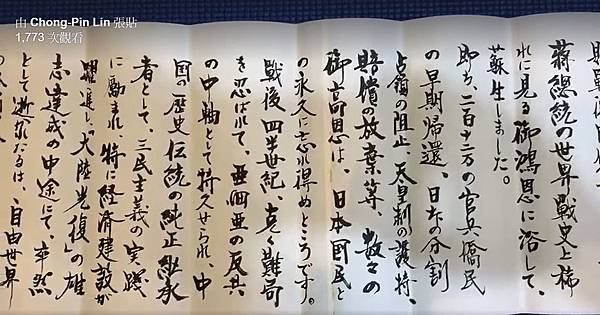 由 Chong-Pin Lin 張貼
1,773 次觀看
蔣總統の世界戰史上稀
れに見る御鴻恩に浴して、
蘇生しました。
即ち、二百十二万の官兵僑民
の早期帰還、日本の分割
占領の阻止、天皇制の護持、
賠償の放棄等、数々の
御高恩は、日本国民と
の永久に忘れ得ぬところです。
戦後四半世紀、克く難局
を忍ばれて、亜細亜の反共
の中軸として持久せられ、中
国の歴史伝統の純正継承
者として、三民主義の実践
に励まれ、特に経済建設が
躍進し、"大陸光復"の雄
志達成の中途にて、卒然
として逝かれたるは、自由世界